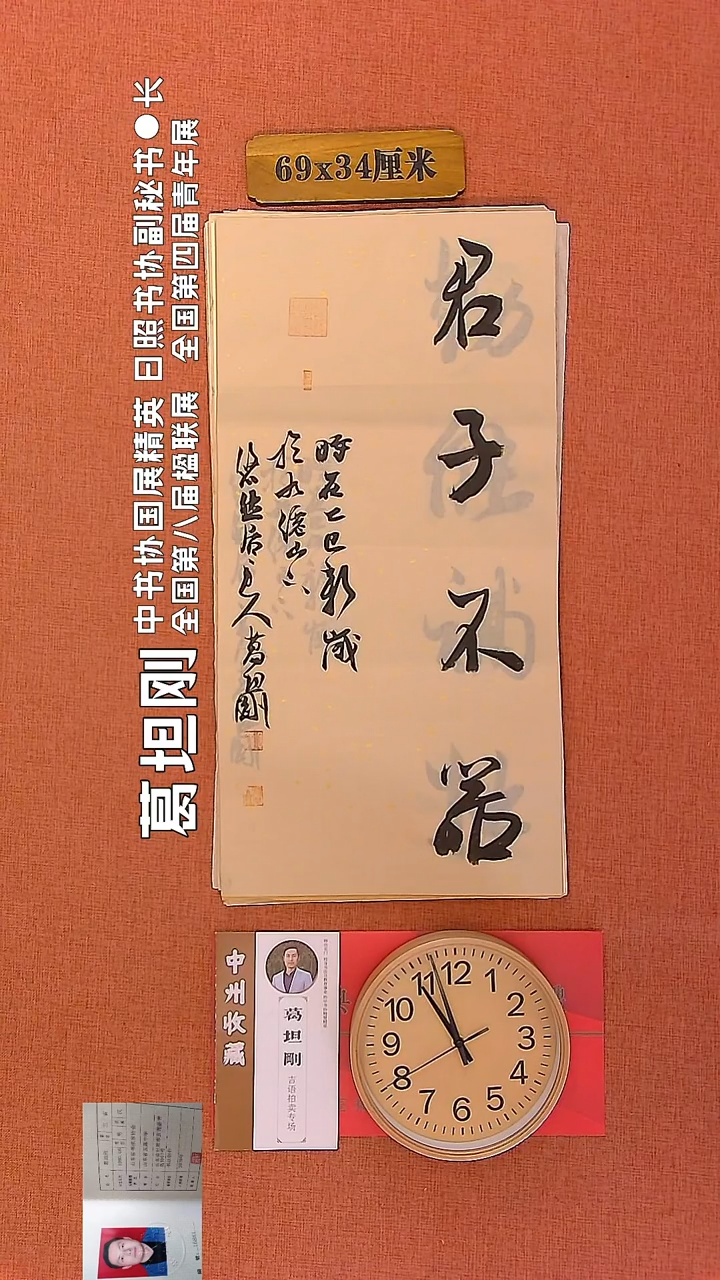 69x34厘米
葛坦刚
中书协国展精英 日照书协副秘书●长
全国第八届楹联展 全国第四届青年展
君子不器
时在乙巳新岁
于九仙山下
悠然居主人葛坦刚
中生收藏
葛坦刚
吉语拍卖专场
12
1
2
3
4
5
6
7
8
9
10
11